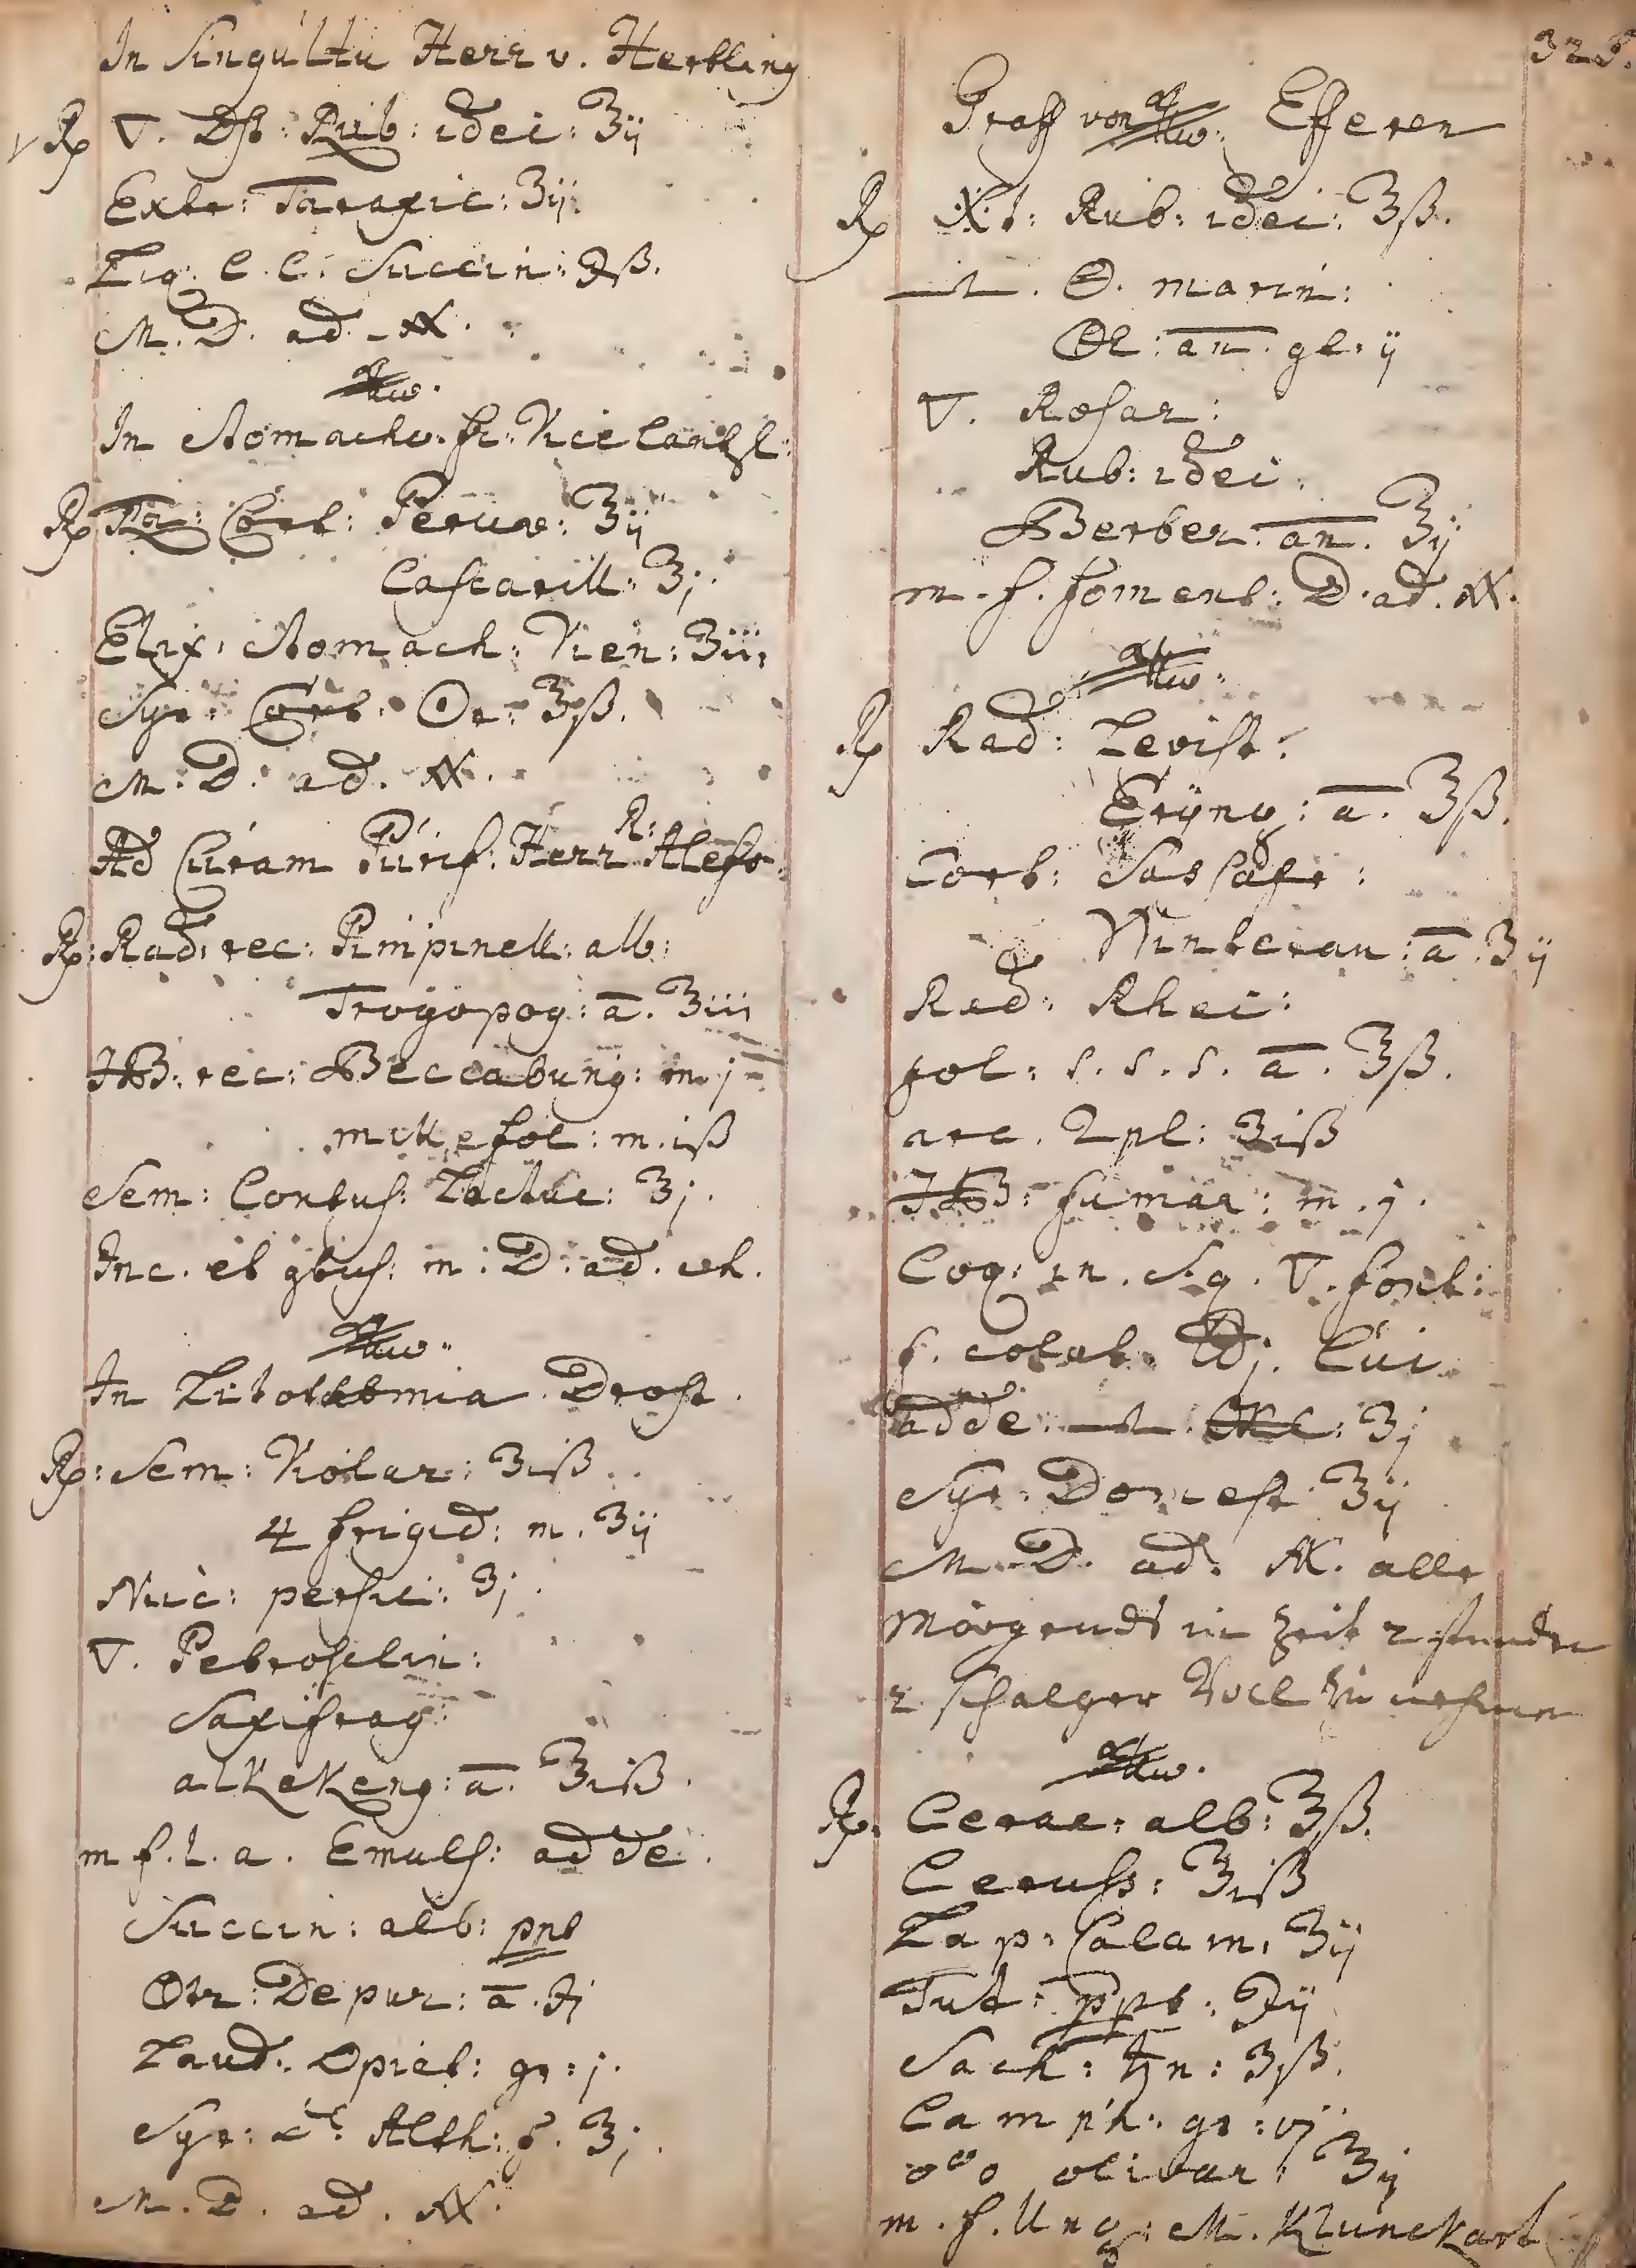 In Singultu Herr v. Hertling
℞ ▽. Dst: Rub: idei: ℥ij
Extr: Taraxic: ʒij
Liq. C. C. Succin: ℈ß.
M. D. ad.
In Stomacho. fr: Vicecantzl:
℞ Cort: Peruv: ʒij
Cascarill: ʒj.
Elix: Stomach: Vien: ʒiij
Syr: Cort: ʒß.
M. D. ad.
Ad Curam Purif: Herr R: Alefr:
℞: Rad: rec: Pimpinell: alb:
Trogopog: a. ʒiij
HB: rec: Beccabung: m. j
millefol: m. iß
Sem: Contus: Lactuc: ʒj.
Inc. et gtus: m: D: ad. ch.
In Litotomia Drost.
℞: Sem: Violar: ʒiß
4 frigid: m. ʒij
Nuc: persic: ʒj.
▽. Petroselin:
Saxifrag:
alkekeng: a. ℥iß.
m f. l. a. Emuls: adde.
Succin: alb: ppt
Depur: a. ℈j
Laud. Opiat: gr: j.
Syr: d. Alth: f. ℥j.
M. D. ad.
325.
Graff von Efferen
℞ Rub: idei: ℥ß.
marin:
an. gt. ij
▽. Rosar:
Rub: idei.
Berber. an. ℥ij
m. f. foment: D. ad.
℞ Rad: Levist:
Eryng: a. ℥ß.
Cort: Sassafr:
Winteran: a. ʒij
Rad: Rhei:
fol: s. s. s. a. ℥ß.
arc. 2pl: ʒiß
HB: fumar: m. j.
Coq: in. s. q. ▽. font:
f. colat. j. Cui
adde. ʒj
Syr. Domest ℥ij
M. D. ad. alle
Morgends in Zeit 2 stunden
2 schalger voll zu nehmen
℞. Cerae: alb: ℥ß.
Ceruss: ʒiß
Lap: Calam: ʒij
Tut: ppt: ℈ij
Sach: ♄n: ʒß.
Camph: gr: vj
o°o olivar: ℥ij
m. f. Ung: M. Klunckart